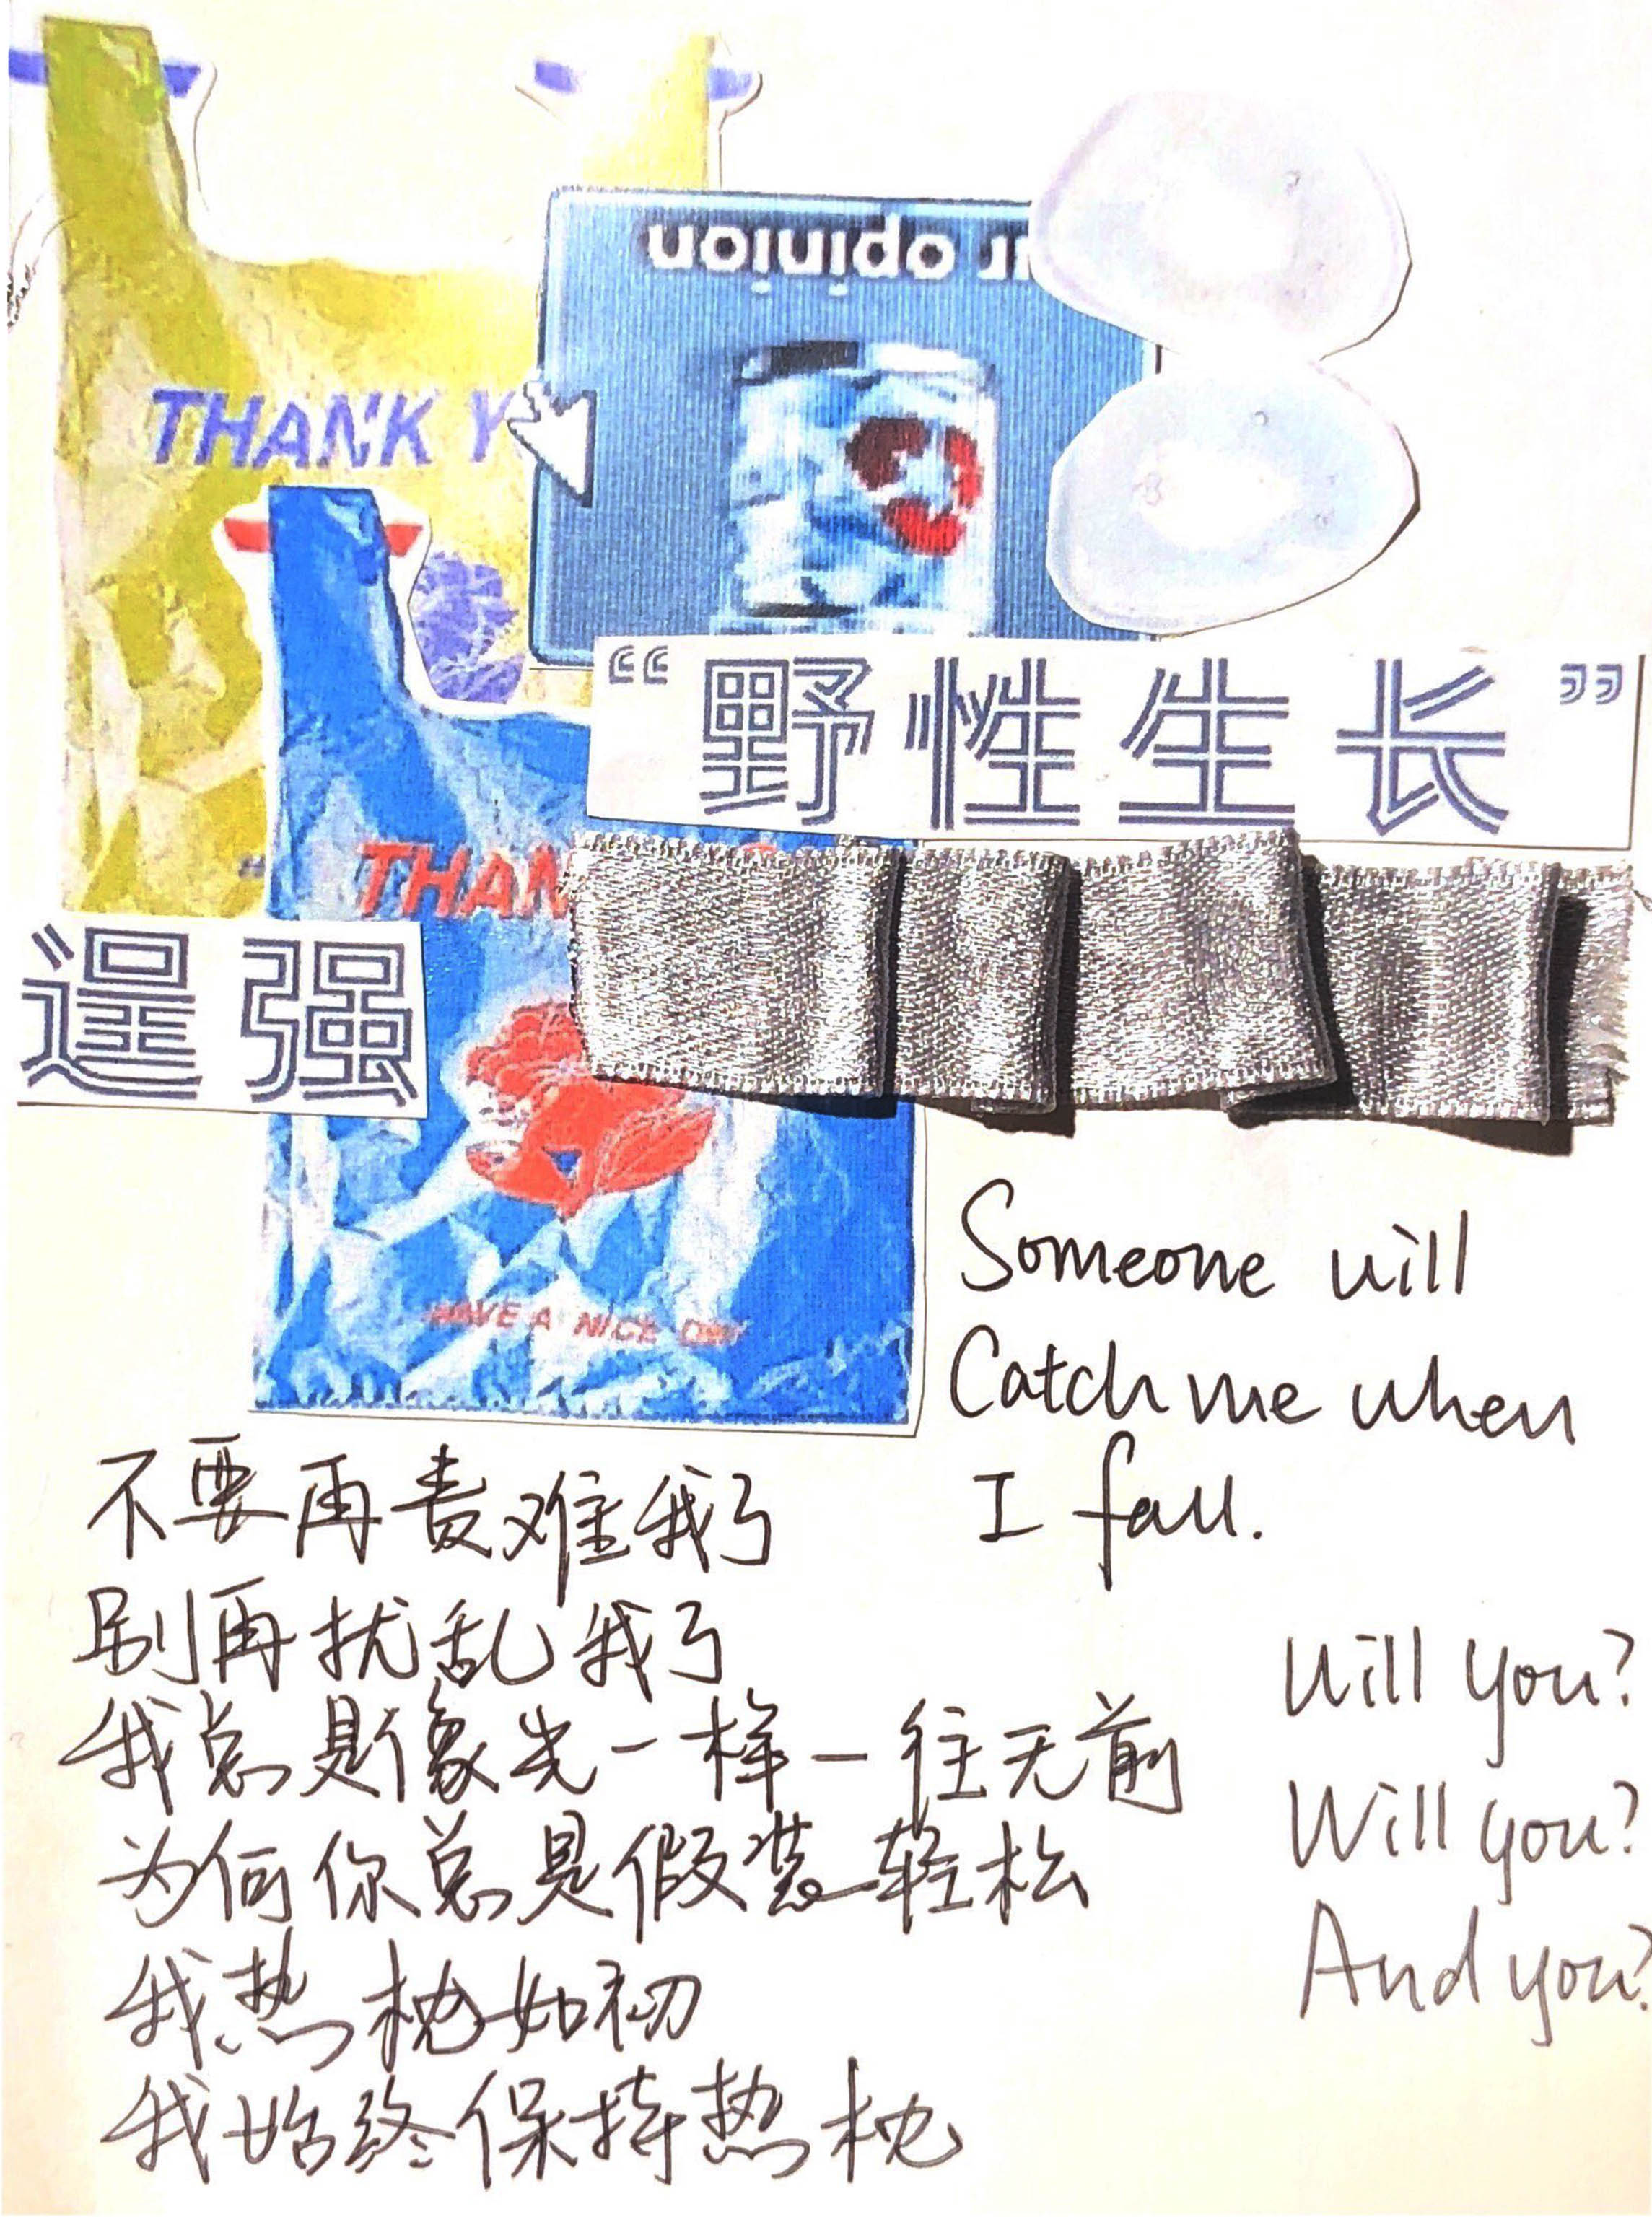 r opinion
THANK Y
“野性生长”
THAN
逞强
HAVE A NICE DAY
Someone will
Catch me when
I fall.
不要再责难我了
别再扰乱我了
我总是像光一样一往无前
为何你总是假装轻松
我热枕如初
我始终保持热枕
Will you?
Will you?
And you?